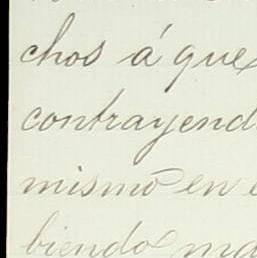 chos á que
contrayend
mismo en e
biendo ma